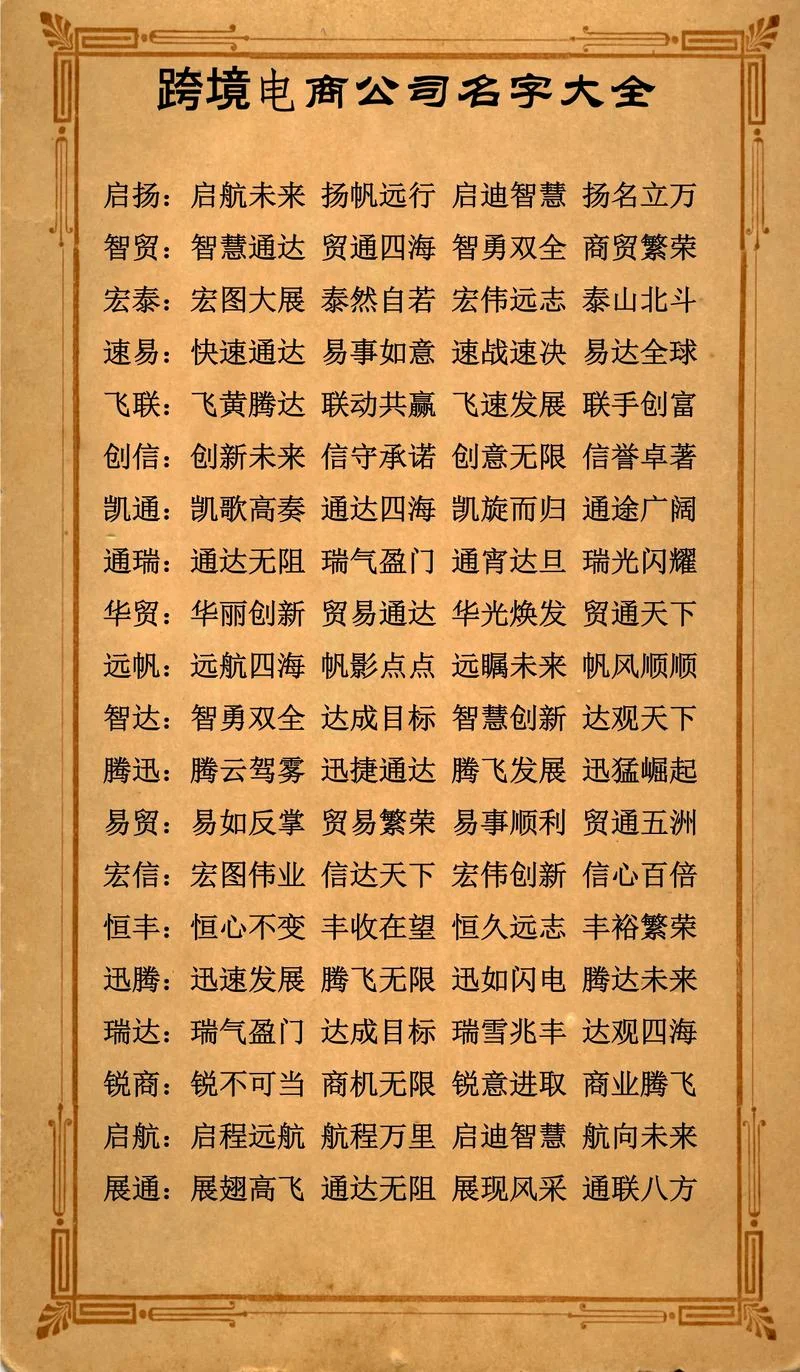 跨境电商公司名字大全
启扬：启航未来 扬帆远行 启迪智慧 扬名立万
智贸：智慧通达 贸通四海 智勇双全 商贸繁荣
宏泰：宏图大展 泰然自若 宏伟远志 泰山北斗
速易：快速通达 易事如意 速战速决 易达全球
飞联：飞黄腾达 联动共赢 飞速发展 联手创富
创信：创新未来 信守承诺 创意无限 信誉卓著
凯通：凯歌高奏 通达四海 凯旋而归 通途广阔
通瑞：通达无阻 瑞气盈门 通宵达旦 瑞光闪耀
华贸：华丽创新 贸易通达 华光焕发 贸通天下
远帆：远航四海 帆影点点 远瞩未来 帆风顺顺
智达：智勇双全 达成目标 智慧创新 达观天下
腾迅：腾云驾雾 迅捷通达 腾飞发展 迅猛崛起
易贸：易如反掌 贸易繁荣 易事顺利 贸通五洲
宏信：宏图伟业 信达天下 宏伟创新 信心百倍
恒丰：恒心不变 丰收在望 恒久远志 丰裕繁荣
迅腾：迅速发展 腾飞无限 迅如闪电 腾达未来
瑞达：瑞气盈门 达成目标 瑞雪兆丰 达观四海
锐商：锐不可当 商机无限 锐意进取 商业腾飞
启航：启程远航 航程万里 启迪智慧 航向未来
展通：展翅高飞 通达无阻 展现风采 通联八方